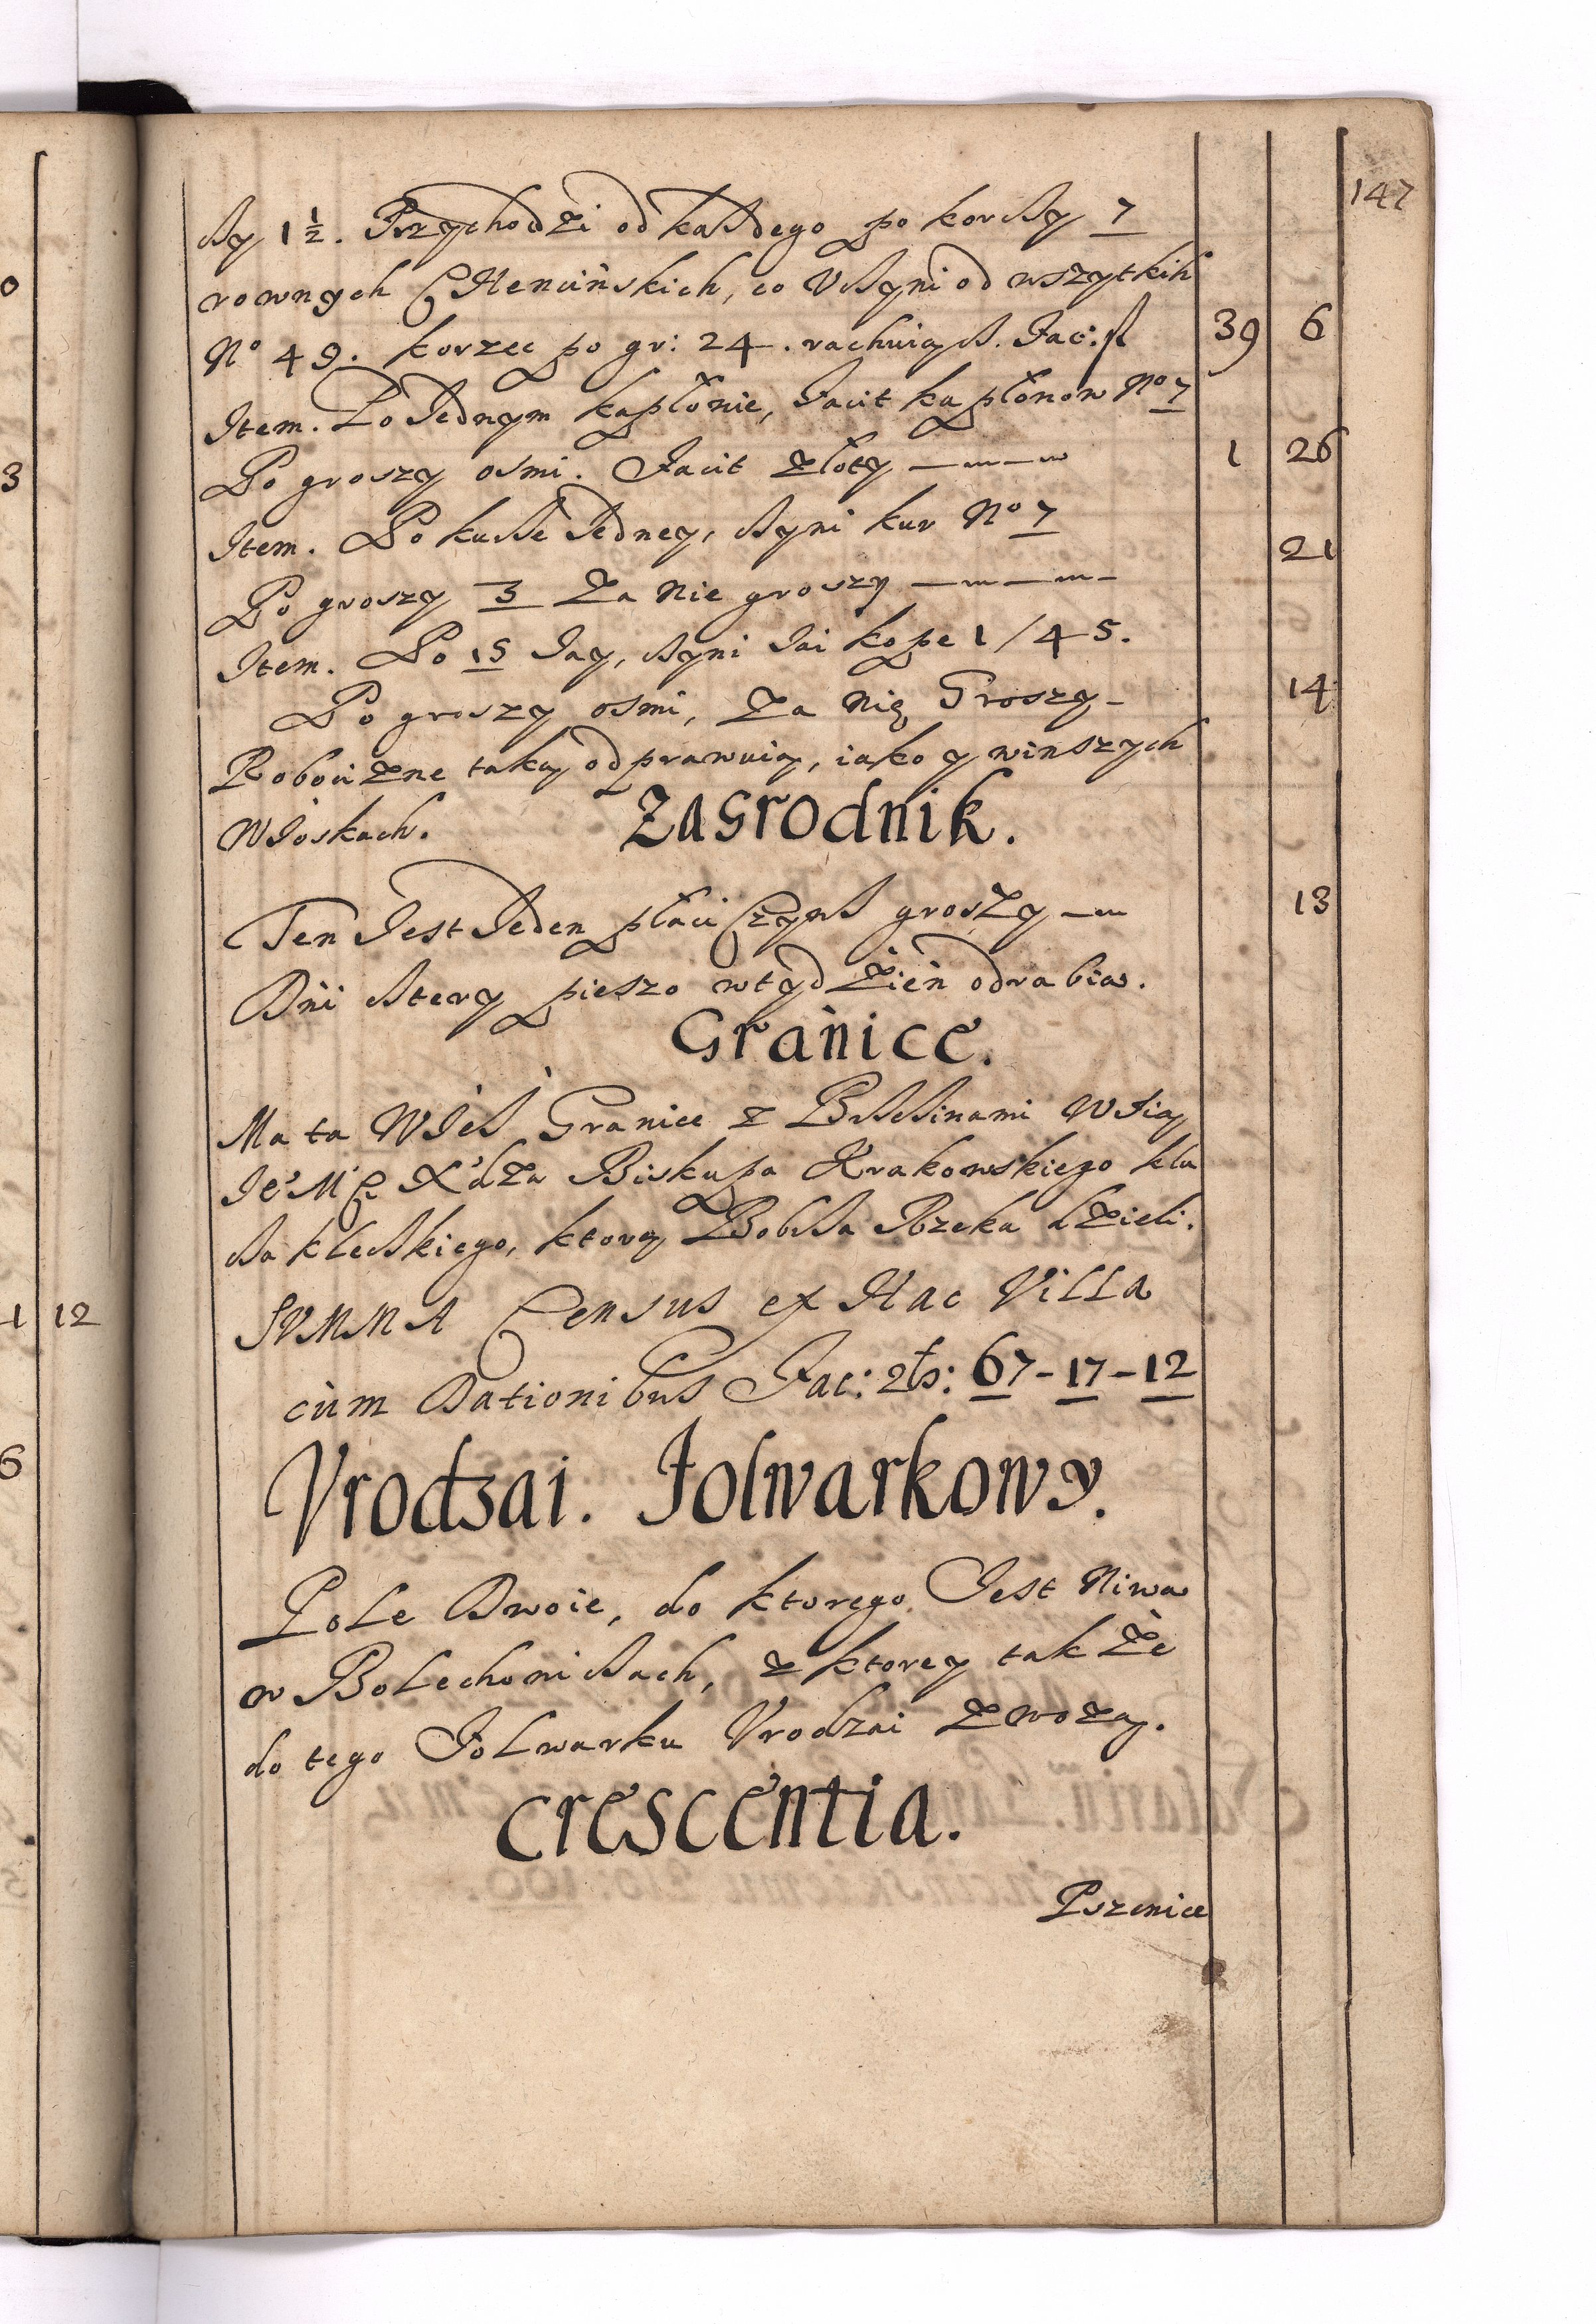 147
czy 1½. Przychodzi od każdego po korczy 7
rownych CHencińskich, co Vczyni od wszytkih
No 49. korzec po gr: 24. rachuiącz. Fac: fl 39 6
Item. Po Jednym kapłonie, Facit kapłonow No 7
Po groszy osmi. Facit złoty 1 26
Item. Po kurze Jedney, czyni kur No 7
Po groszy 3 za nie groszy 21
Item. Po 15 Jay, czyni Jai kope 1/45.
Po groszy osmi, za nię Groszy 14
Robociznę taką odprawuią, iako y winszych
WJoskach.
Zagrodnik.
Ten Jest Jeden płaci Czynsz groszy 13
Dni cztery pieszo wtydzień odrabia.
Granice.
Ma ta WJeś Granice z Brzezinami WSią
Je'Mci X'dza Biskupa Krakowskiego klu
cza kieleckiego, ktorą Bobrza Rzeka dzieli.
SVMMA Census ex Hac Villa
cum Dationibus Fac: zło: 67-17-12
Vrodzai. Folwarkowy.
Pole Dwoie, do ktorego Jest Niwa
w Bolechowicach, z ktorey takze
do tego Folwarku Vrodzai zwozą.
Crescentia.
Pszenice
0
3
1 12
6